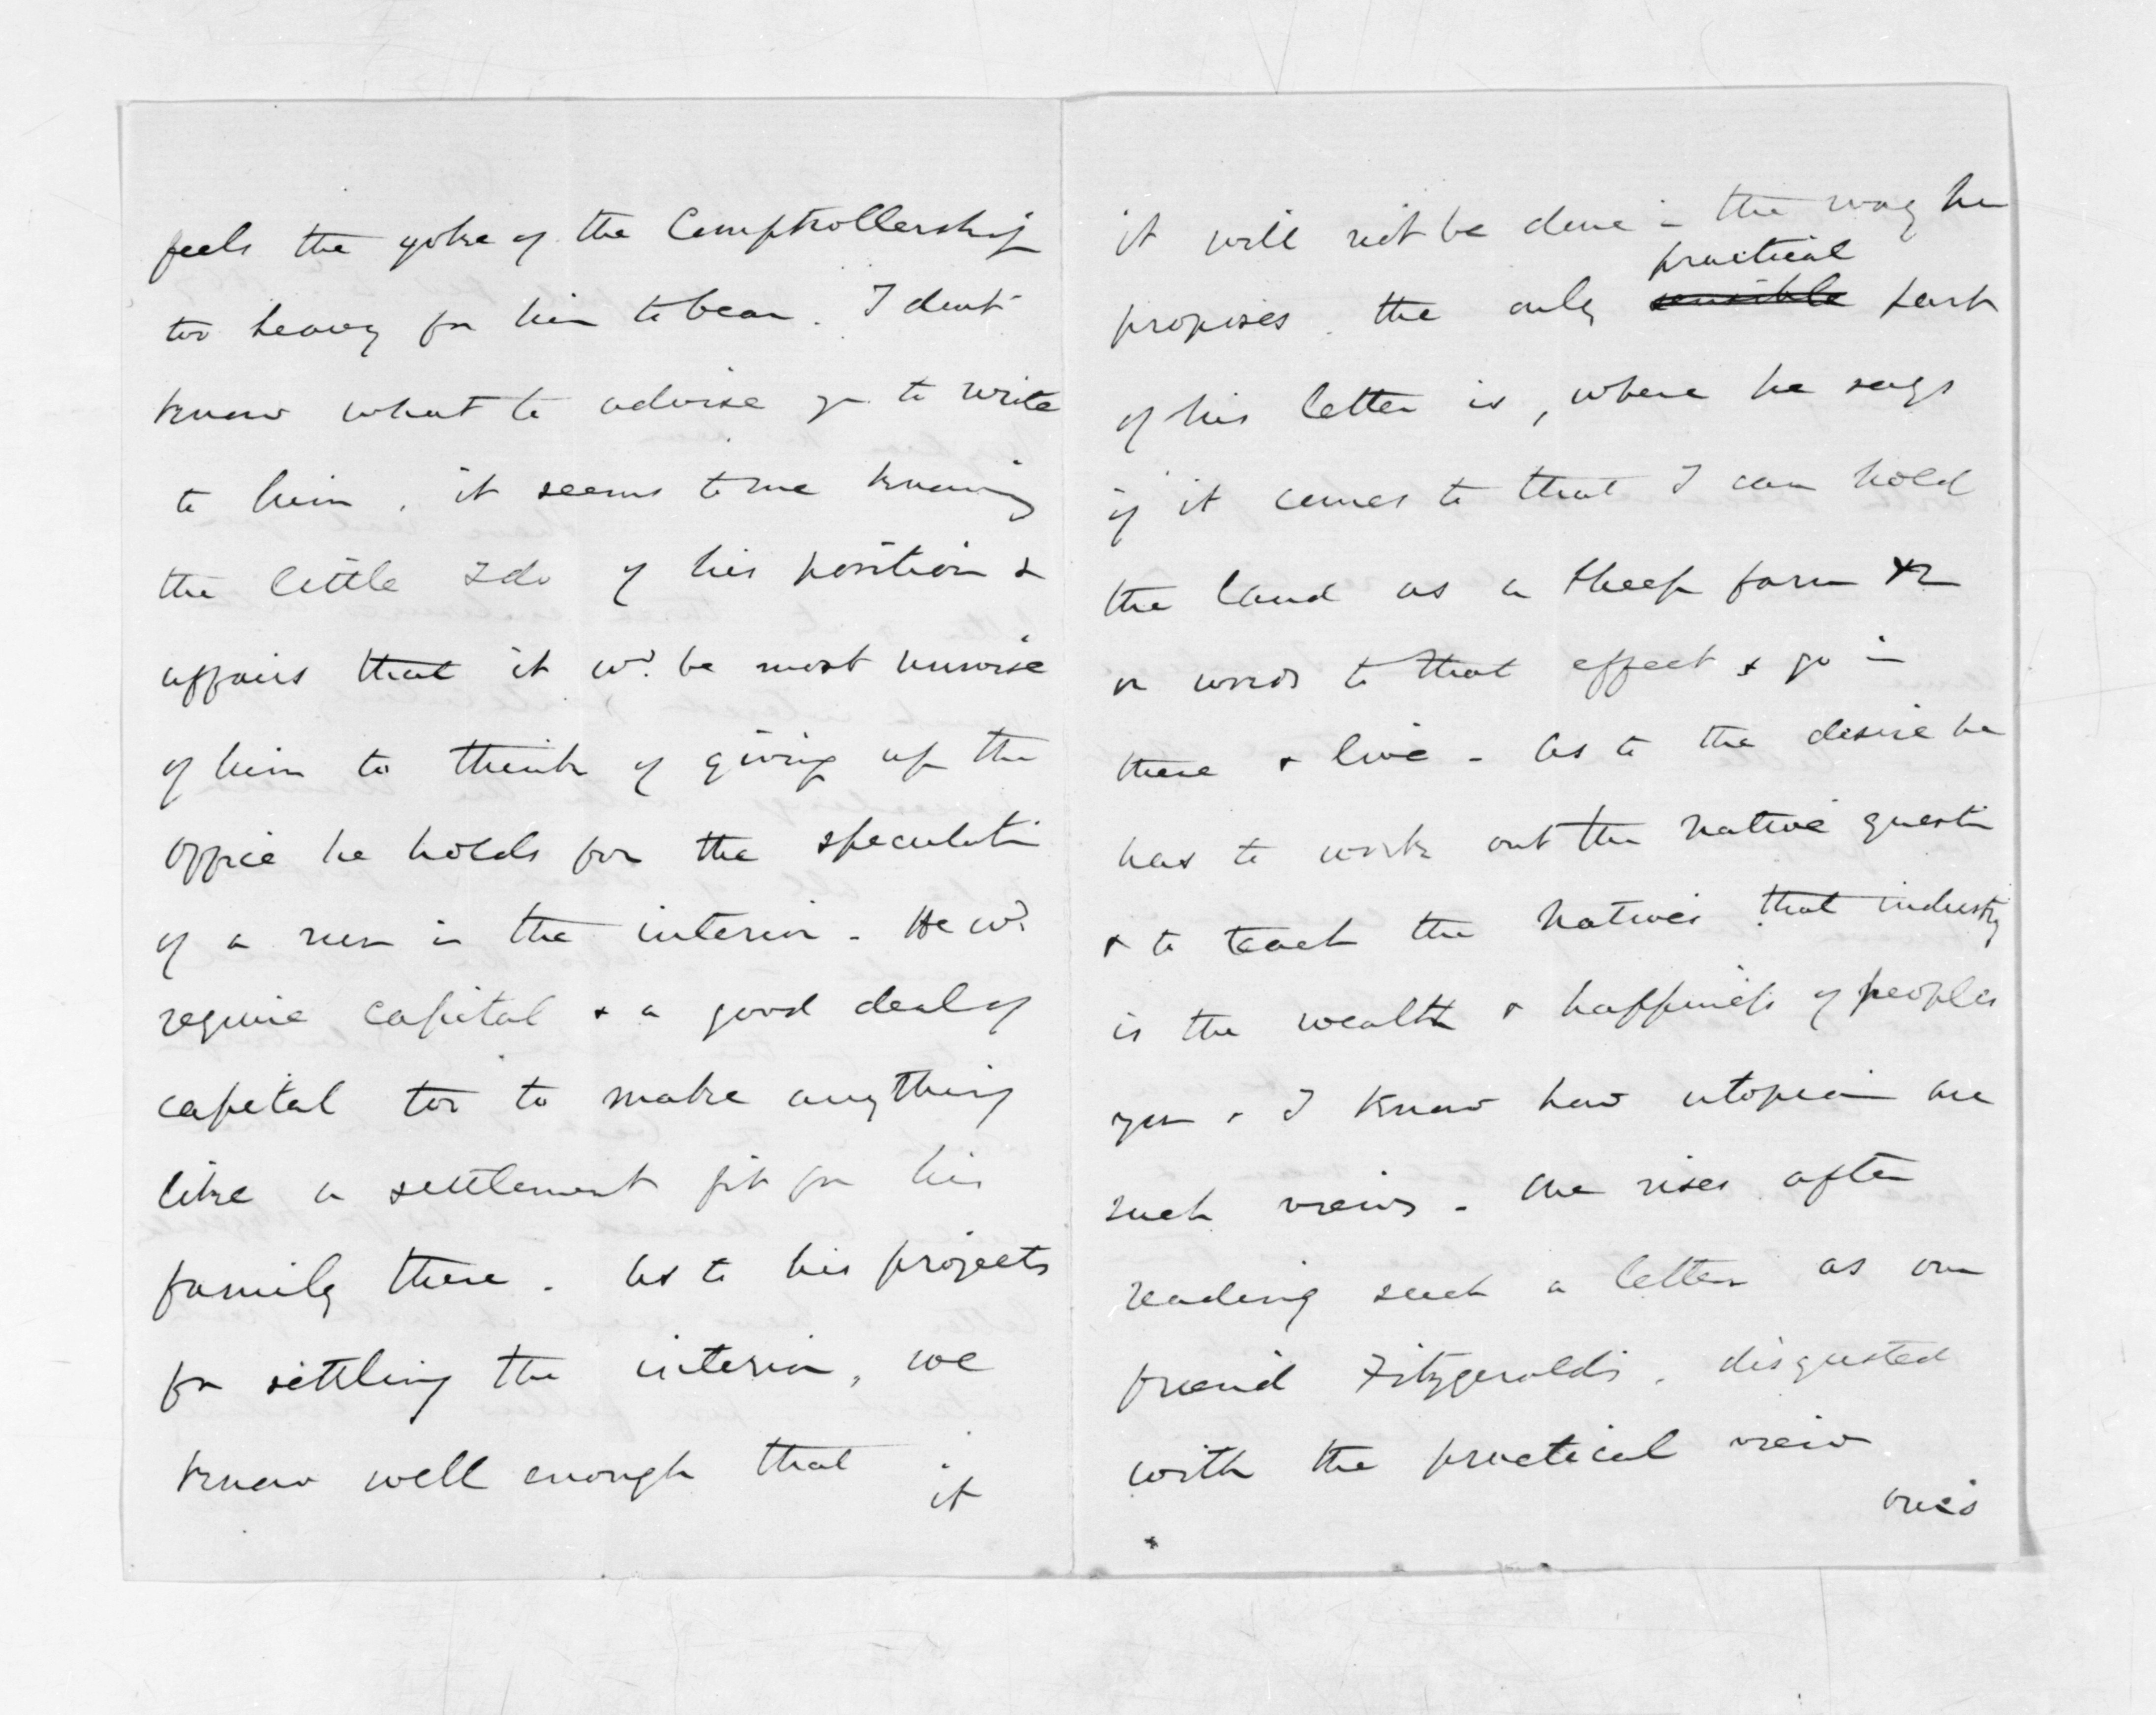 feels the yoke of the Comptrollership
too heavy for him to bear. I dont
know what to advise yr. to write
to him, it seems to me knowing
the little I do of his position &
affairs that it wd. be most unwise
of him to think of giving up the
office he holds for the speculatn
of a run in the interior - He wd.
require capital & a good deal of
capital too to make anything
like a settlement fit for his
family there. As to his projects
for settling the interior, we
know well enough that
it
it will not be done in the way he
practical
proposes. the only sensible part
of his letter is, where he says
if it comes to that I can hold
the land as a sheep farm &c
or words to that effect & go in
there & live - As to the desire he
has to work out the native questn
& to teach the Natives that industry
is the wealth & happiness of peoples
you & I know how utopian are
such views - One rises after
reading such a letter as our
friend Fitzgeralds, disgusted
with the practical view
one's